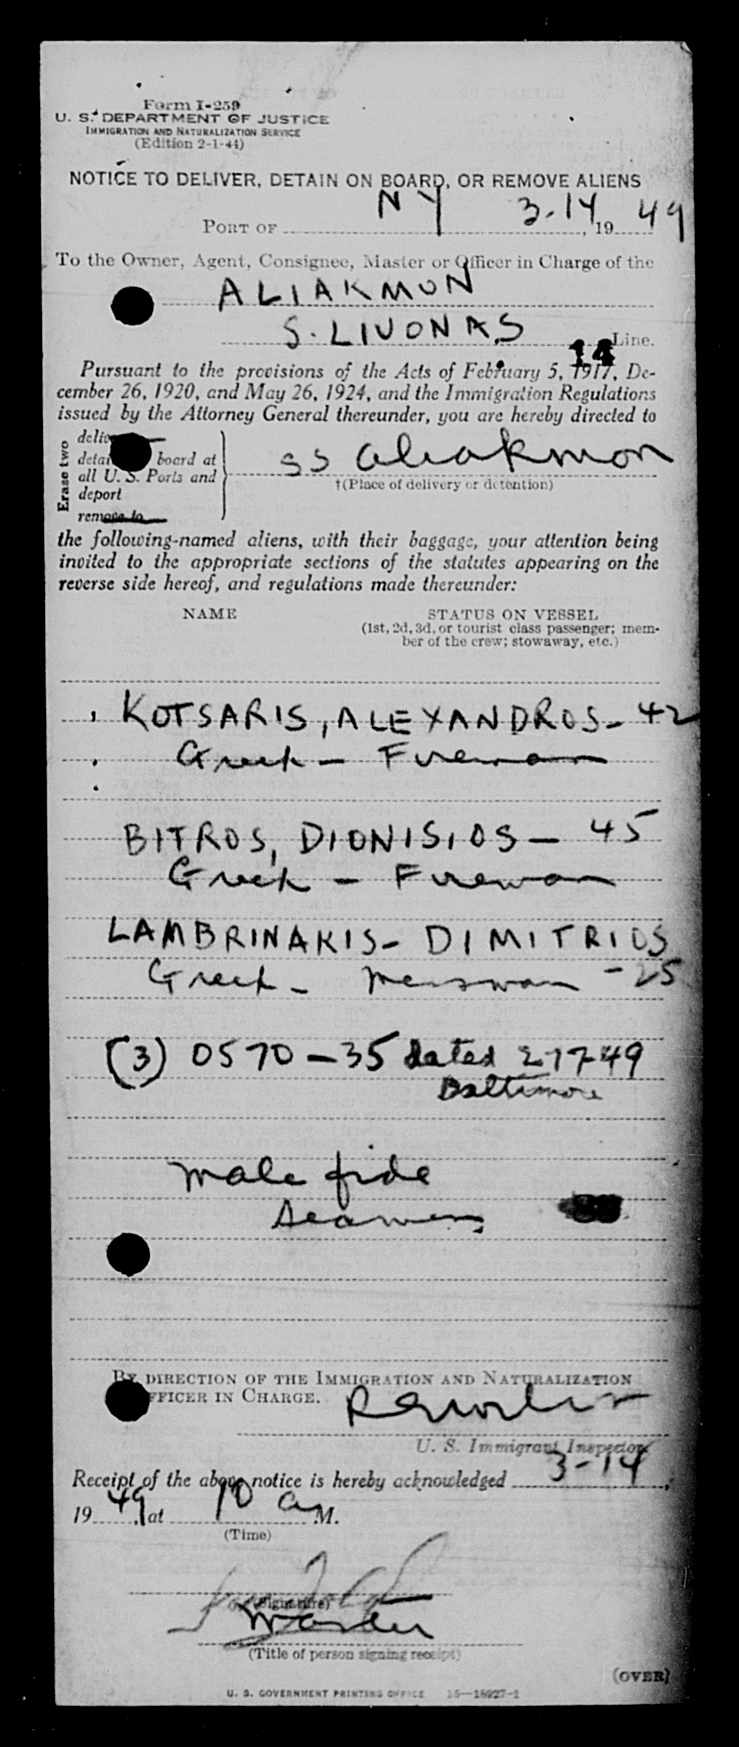 Form I-259
U. S. DEPARTMENT OF JUSTICE
IMMIGRATION AND NATURALIZATION SERVICE
(Edition 2-1-44)
NOTICE TO DELIVER, DETAIN ON BOARD, OR REMOVE ALIENS
PORT OF NY 3-14, 1949
To the Owner, Agent, Consignee, Master or Officer in Charge of the
ALIAKMON
S. LIVONAS Line.
14
Pursuant to the provisions of the Acts of February 5, 1917, De-
cember 26, 1920, and May 26, 1924, and the Immigration Regulations
issued by the Attorney General thereunder, you are hereby directed to
Erase two
deliv
detai board at
all U. S. Ports and
deport
remove to
SS Aliakmon
†(Place of delivery or detention)
the following-named aliens, with their baggage, your attention being
invited to the appropriate sections of the statutes appearing on the
reverse side hereof, and regulations made thereunder:
NAME STATUS ON VESSEL
(1st, 2d, 3d, or tourist class passenger; mem-
ber of the crew; stowaway, etc.)
KOTSARIS, ALEXANDROS - 42
Greek - Fireman
BITROS, DIONISIOS - 45
Greek - Fireman
LAMBRINAKIS - DIMITRIOS
Greek - Messman - 25
(3) 0570-35 dated 2-17-49
Baltimore
Male fide
Seamen
BY DIRECTION OF THE IMMIGRATION AND NATURALIZATION
OFFICER IN CHARGE.
U. S. Immigrant Inspector
Receipt of the above notice is hereby acknowledged 3-14,
1949, at 10 a M.
(Time)
(Signature)
Master
(Title of person signing receipt)
(OVER)
U. S. GOVERNMENT PRINTING OFFICE 16—18927-1